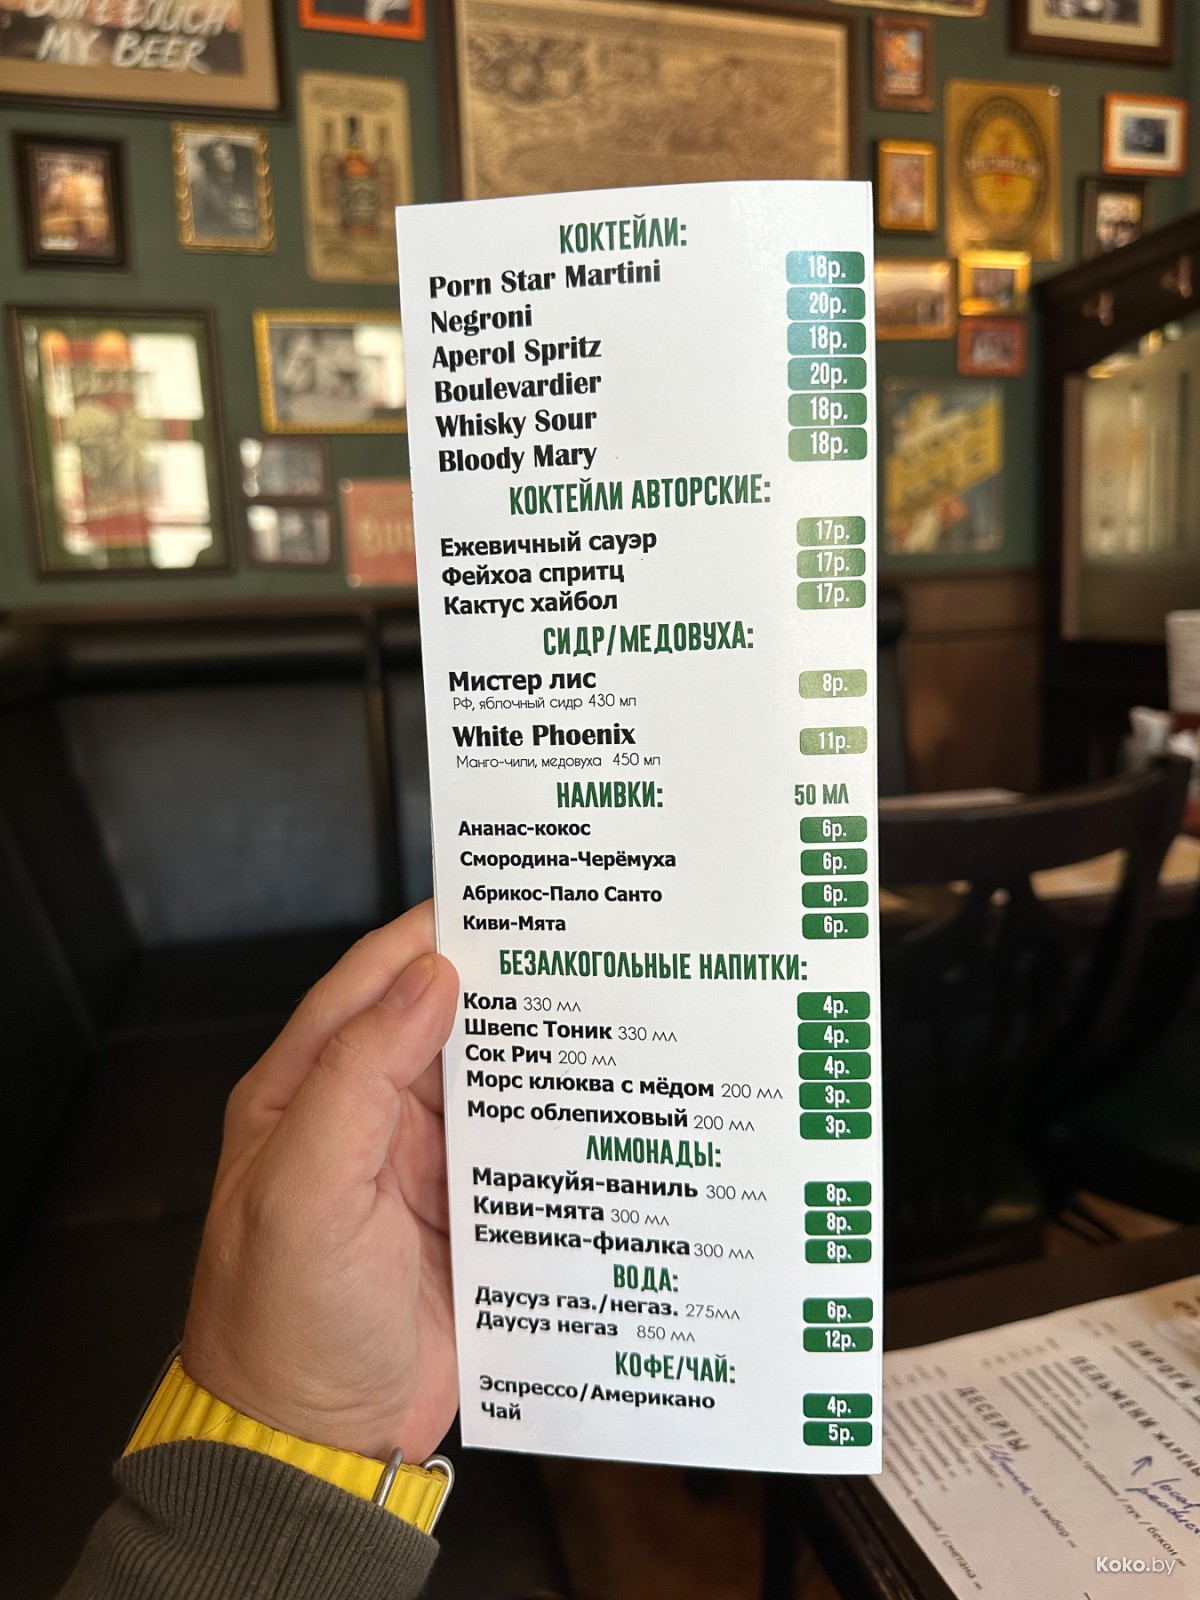 DON'T TOUCH
MY BEER
КОКТЕЙЛИ:
Porn Star Martini 18р.
Negroni 20р.
Aperol Spritz 18р.
Boulevardier 20р.
Whisky Sour 18р.
Bloody Mary 18р.
КОКТЕЙЛИ АВТОРСКИЕ:
Ежевичный сауэр 17р.
Фейхоа спритц 17р.
Кактус хайбол 17р.
СИДР/МЕДОВУХА:
Мистер лис 8р.
РФ, яблочный сидр 430 мл
White Phoenix 11р.
Манго-чили, медовуха 450 мл
НАЛИВКИ: 50 МЛ
Ананас-кокос 6р.
Смородина-Черёмуха 6р.
Абрикос-Пало Санто 6р.
Киви-Мята 6р.
БЕЗАЛКОГОЛЬНЫЕ НАПИТКИ:
Кола 330 мл 4р.
Швепс Тоник 330 мл 4р.
Сок Рич 200 мл 4р.
Морс клюква с мёдом 200 мл 3р.
Морс облепиховый 200 мл 3р.
ЛИМОНАДЫ:
Маракуйя-ваниль 300 мл 8р.
Киви-мята 300 мл 8р.
Ежевика-фиалка 300 мл 8р.
ВОДА:
Даусуз газ./негаз. 275мл 6р.
Даусуз негаз 850 мл 12р.
КОФЕ/ЧАЙ:
Эспрессо/Американо 4р.
Чай 5р.
ПИРОГИ
ПЕЛЬМЕНИ ЖАРЕНЫ
ДЕСЕРТЫ
на выбор
local
Koko.by